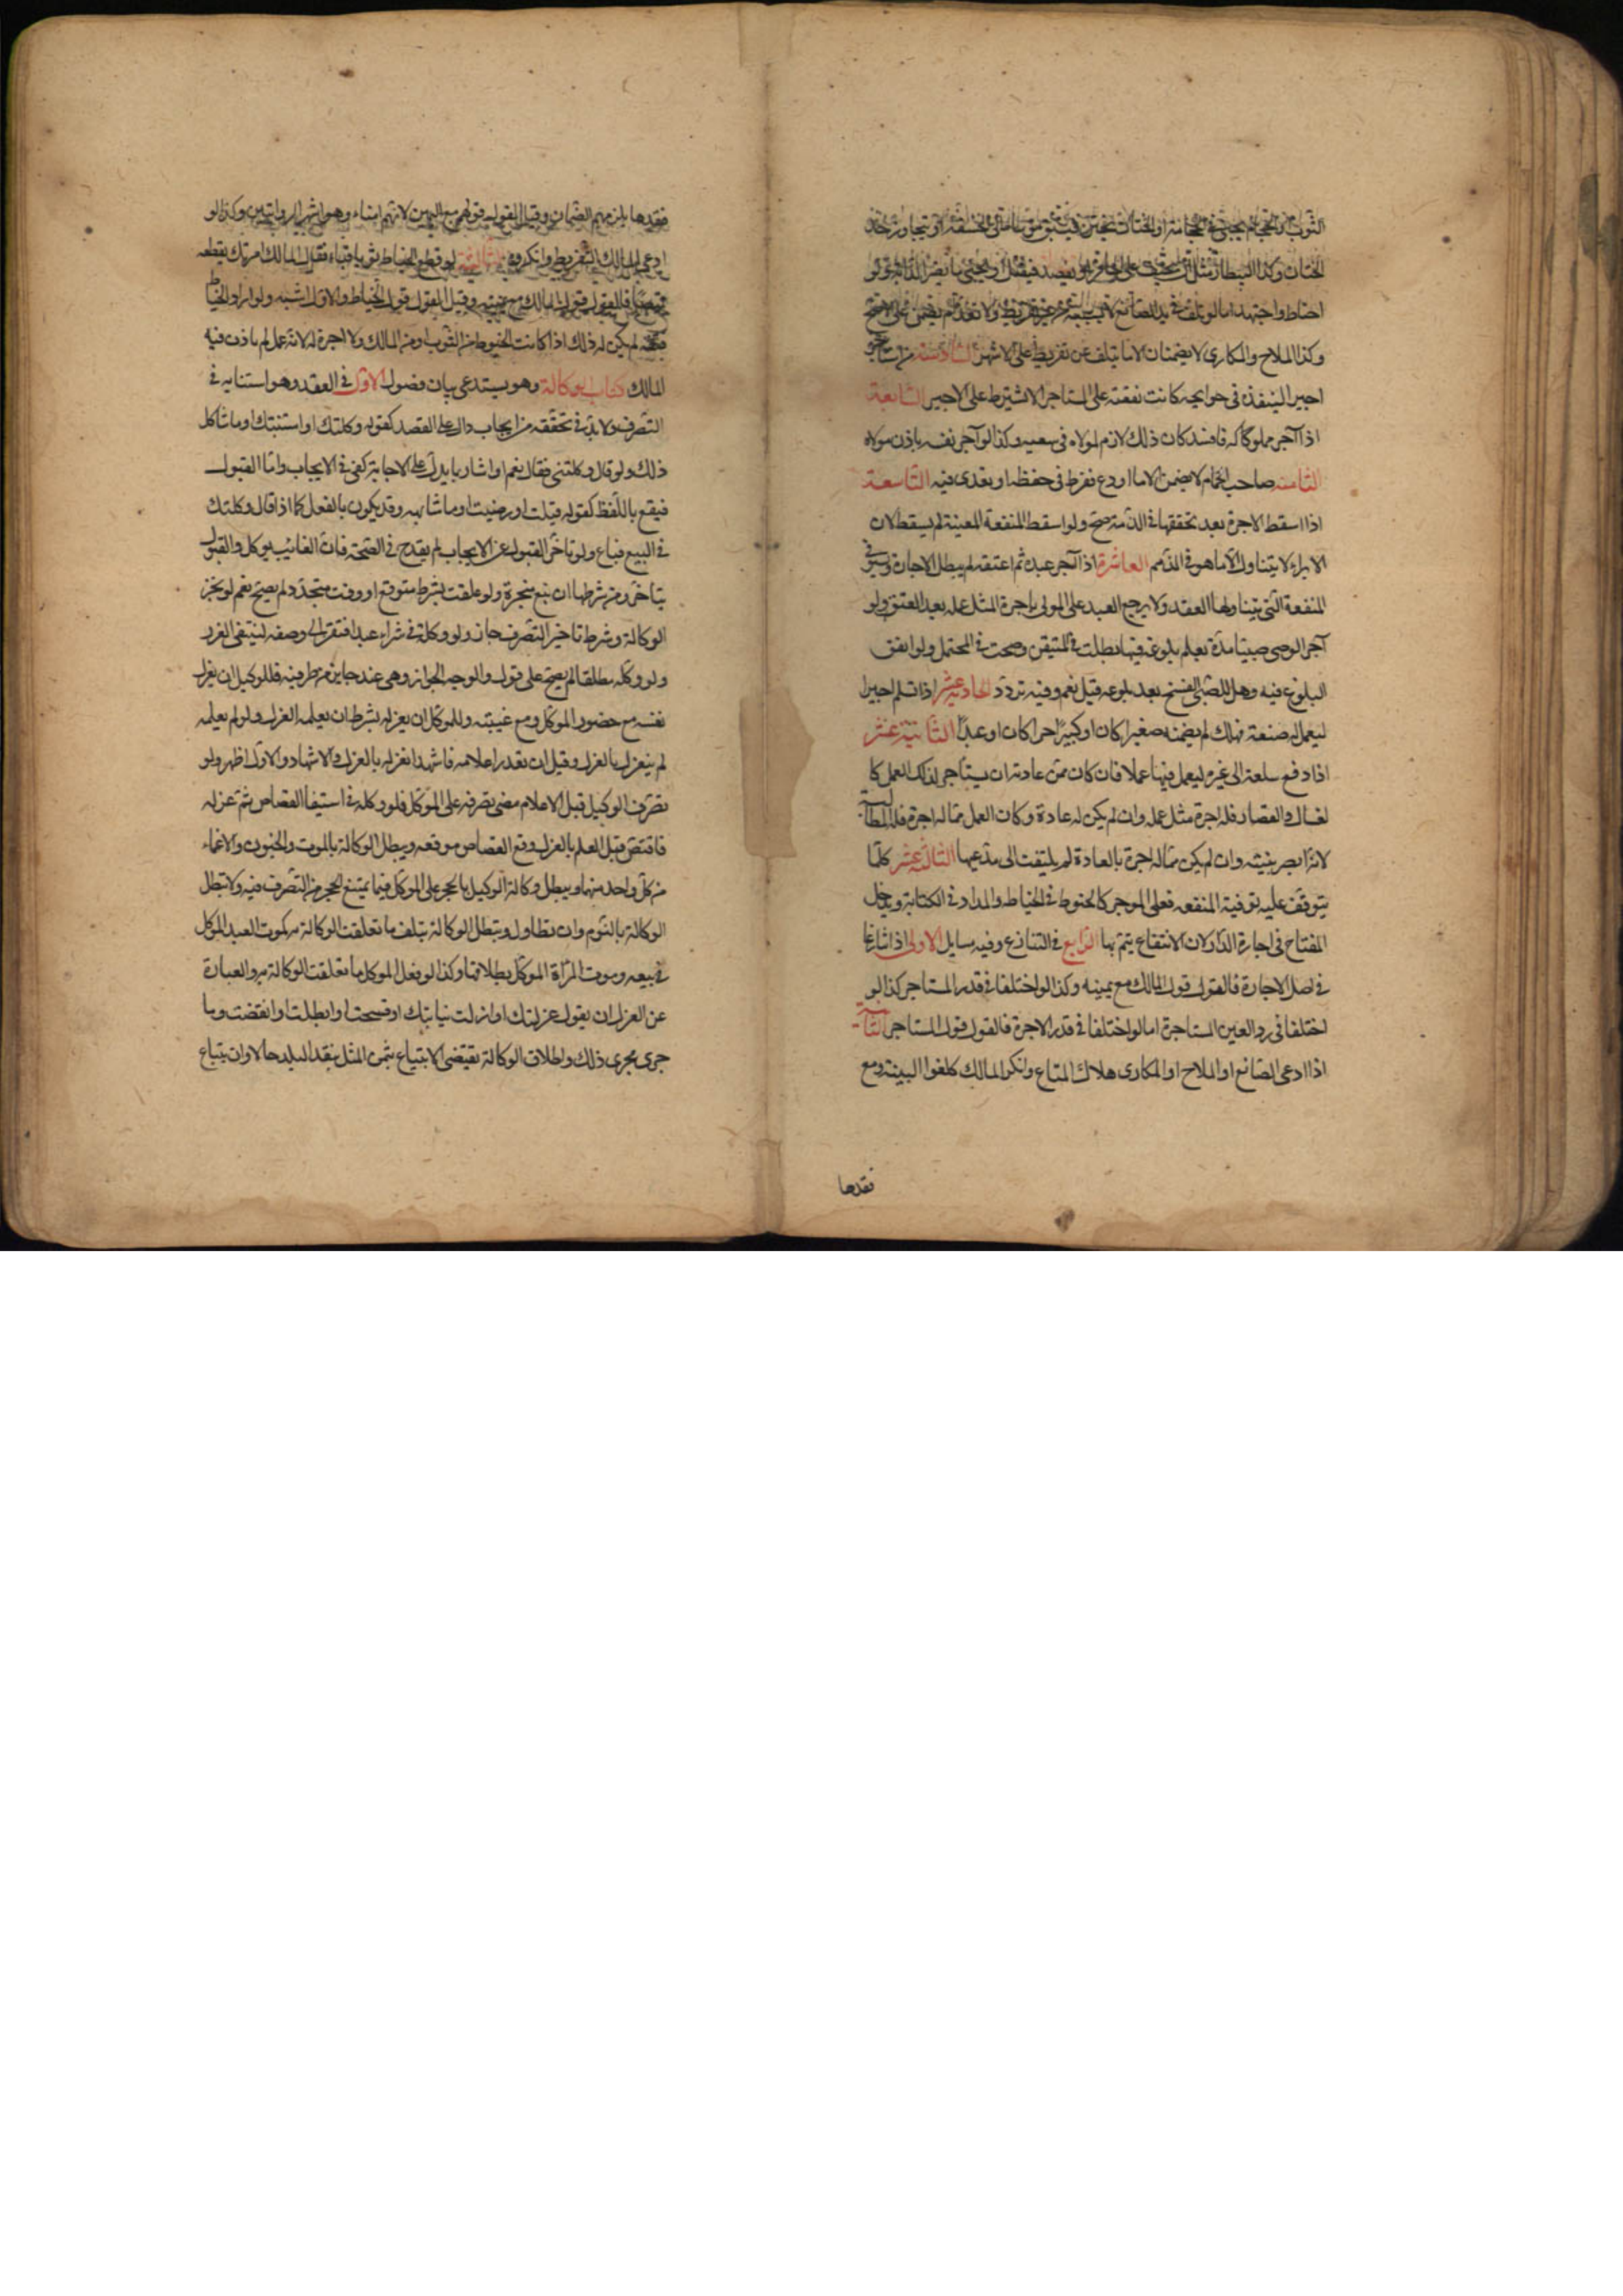 الثوب او الحجام يجنى فى حجامته او الختان يختن فيسبق موساه الى الحشفة او يتجاوز حد
الختان وكذا البيطار مثل ان يحيف على الحافر او يفصد فيقتل او يجنى ما يضر الدابة ولو
احتاط واجتهد اما لو تلف فى يد الصانع لا بسببه من غير تفريط ولا تعد لم يضمن على الاصح
وكذا الملاح والمكارى لا يضمنان الا ما يتلف عن تفريط على الاشهر السادسة من استاجر
اجيرا لينفذه فى حوايجه كانت نفقته على المستاجر الا ان يشترط على الاجير السابعة
اذا آجر مملوكا له فافسد كان ذلك لازم لمولاه فى سعيه وكذا لو آجر نفسه باذن مولاه
الثامنه صاحب الحمام لا يضمن الا ما اودع ففرط فى حفظه او تعدى فيه التاسعة
اذا اسقط الاجرة بعد تحققها فى الذمة صح ولو اسقط المنفعة المعينة لم يسقط لان
الابراء لا يتناول الا ما هو فى الذمم العاشرة اذا آجر عبده ثم اعتقه لم يبطل الاجارة ويستوفى
المنفعة التى يتناولها العقد ولا يرجع العبد على المولى باجرة المثل عمله بعد العتق ولو
آجر الوصى صبيا مدة يعلم بلوغه فيها بطلت فى المتيقن وصحت فى المحتمل ولو اتفق
البلوغ فيه وهل للصبى الفسخ بعد بلوغه قيل نعم وفيه تردد الحادية عشر اذا تسلم اجيرا
ليعمل له صنعة فهلك لم يضمنه صغيرا كان او كبيرا حرا كان او عبدا الثانية عشر
اذا دفع سلعة الى غيره ليعمل فيها عملا فان كان ممن عادته ان يستاجر لذلك العمل كا
لغسال والقصار فله اجرة مثل عمله وان لم يكن له عادة وكان العمل مما له اجرة فله المطالبة
لانه ابصر بنيته وان لم يكن مما له اجرة بالعادة لم يلتفت الى مدعيها الثالثة عشر كلما
يتوقف عليه توفية المنفعه فعلى الموجر كالخيوط فى الخياطه والمداد فى الكتابة ويدخل
المفتاح فى اجارة الدار لان الانتفاع يتم بها الرابع فى التنازع وفيه مسايل الاولى اذا تنازعا
فى اصل الاجارة فالقول قول المالك مع يمينه وكذا لو اختلفا فى قدر المستاجر كذا لو
اختلفا فى رد العين المستاجرة اما لو اختلفا فى قدر الاجرة فالقول قول المستاجر الثانية
اذا ادعى الصانع او الملاح او المكارى هلاك المتاع وانكر المالك كلفوا البينة ومع
فقدها
فقدها يلزمهم الضمان وقيل القول قولهم مع اليمين لانهم امناء وهو اشهر الروايتين وكذا لو
ادعى المالك التفريط وانكروه الثالثة لو قطع الخياط ثوبا قباء فقال المالك امرتك بقطعه
قميصا فالقول قول المالك مع يمينه وقيل القول قول الخياط والاول اشبه ولو اراد الخياط
فتقه لم يكن له ذلك اذا كانت الخيوط من الثوب او من المالك ولا اجرة له لانه عمل لم ياذن فيه
المالك كتاب الوكالة وهو يستدعى بيان فصول الاول فى العقد وهو استنابه فى
التصرف ولا بد فى تحققه من ايجاب دال على القصد كقوله وكلتك او استنبتك او ما شاكل
ذلك ولو قال وكلتنى فقال نعم او اشار بما يدل على الاجابة كفى فى الايجاب واما القبول
فيقع باللفظ كقوله قبلت او رضيت او ما شابهه وقد يكون بالفعل كما اذا قال وكلتك
فى البيع فباع ولو تاخر القبول عن الايجاب لم يقدح فى الصحة فان الغائب يوكل والقبول
يتاخر ومن شرطها ان تقع منجزة ولو علقت بشرط متوقع او وقت متجدد لم يصح نعم لو نجز
الوكالة وشرط تاخير التصرف جاز ولو وكله فى شراء عبد افتقر الى وصفه لينتفى الغرر
ولو وكله مطلقا لم يصح على قول والوجه الجواز وهى عقد جايز من طرفيه فللوكيل ان يعزل
نفسه مع حضور الموكل ومع غيبته وللموكل ان يعزله بشرط ان يعلمه العزل ولو لم يعلمه
لم ينعزل بالعزل وقيل ان تعذر اعلامه فاشهد انعزل بالعزل والاشهاد والاول اظهر ولو
تصرف الوكيل قبل الاعلام مضى تصرفه على الموكل فلو وكله فى استيفا القصاص ثم عزله
فاقتص قبل العلم بالعزل وقع القصاص موقعه ويبطل الوكالة بالموت والجنون والاغماء
من كل واحد منهما ويبطل وكالة الوكيل بالحجر على الموكل فيما يمتنع الحجر من التصرف فيه ولا تبطل
الوكالة بالنوم وان تطاول وتبطل الوكالة بتلف ما تعلقت الوكالة به كموت العبد الموكل
فى بيعه وموت المراة الموكل بطلاقها وكذا لو فعل الموكل ما تعلقت الوكالة به والعبارة
عن العزل ان يقول عزلتك او ازلت نيابتك او فسخت او ابطلت او انقضت وما
جرى مجرى ذلك واطلاق الوكالة يقتضى الابتياع بثمن المثل بنقد البلد حالا وان يبتاع